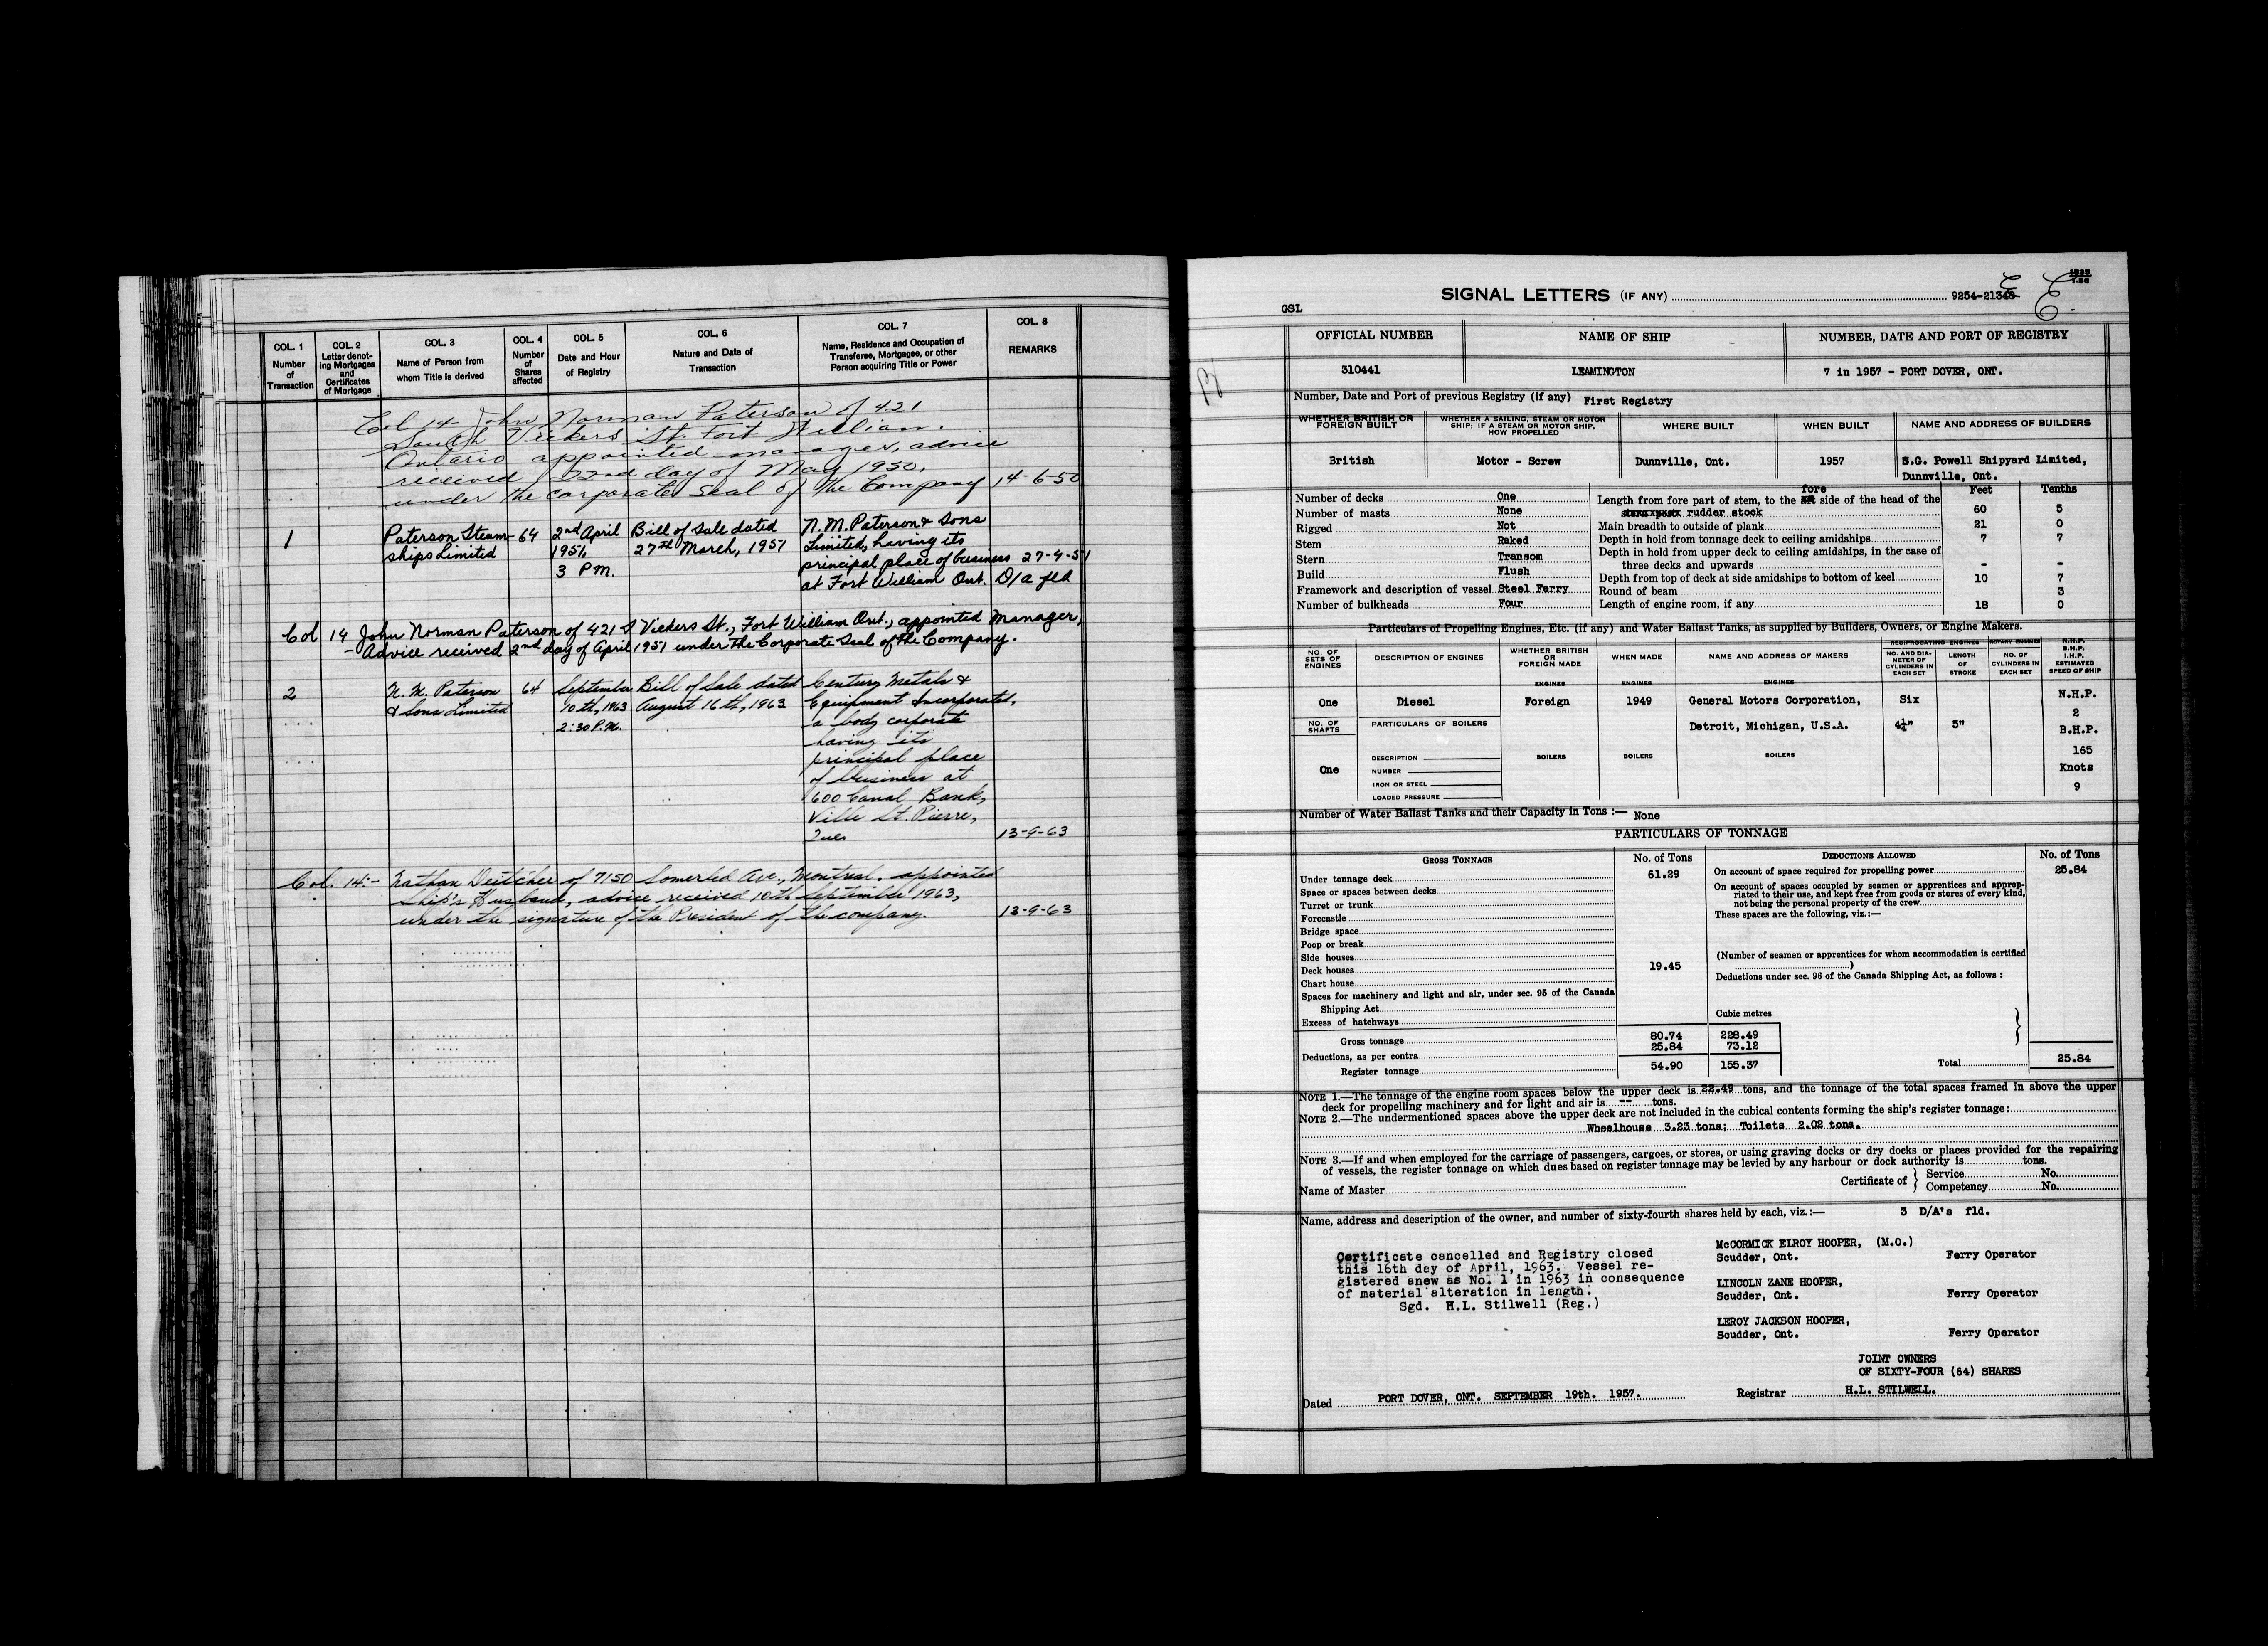 COL. 1
Number
of
Transaction
COL. 2
Letter denot-
ing Mortgages
and
Certificates
of Mortgage
COL. 3
Name of Person from
whom Title is derived
COL. 4
Number
of
Shares
affected
COL. 5
Date and Hour
of Registry
COL. 6
Nature and Date of
Transaction
COL. 7
Name, Residence and Occupation of
Transferee, Mortgagee, or other
Person acquiring Title or Power
COL. 8
REMARKS
Col 14- John Norman Paterson of 421
South Vickers St. Fort William.
Ontario appointed manager, advice
received 22nd day of May 1950,
under the corporate seal of the Company 14-6-50
1
Paterson Steam-
ships Limited
64
2nd April
1951,
3 P.M.
Bill of Sale dated
27th March, 1951
N. M. Paterson & Sons
Limited, having its
principal place of business
at Fort William Ont.
27-4-51
D/a fld
Col 14 John Norman Paterson of 421 S Vickers St., Fort William Ont., appointed Manager,
- Advice received 2nd day of April 1951 under the Corporate Seal of the Company.
2
N. M. Paterson
& Sons Limited
64
September
10th, 1963
2:30 P.M.
Bill of Sale dated
August 16th, 1963
Century Metals &
Equipment Incorporated,
a body corporate
having its
principal place
of business at
600 Canal Bank,
Ville St. Pierre,
Que.
13-9-63
Col. 14:- Nathan Deitcher of 7150 Somerled Ave., Montreal, appointed
Ship's Husband, advice received 10th September 1963,
under the signature of the President of the company. 13-9-63
SIGNAL LETTERS (IF ANY) 9254-21348
GSL
OFFICIAL NUMBER
NAME OF SHIP
NUMBER, DATE AND PORT OF REGISTRY
310441
LEAMINGTON
7 in 1957 - PORT DOVER, ONT.
Number, Date and Port of previous Registry (if any) First Registry
WHETHER BRITISH OR
FOREIGN BUILT
WHETHER A SAILING, STEAM OR MOTOR
SHIP; IF A STEAM OR MOTOR SHIP,
HOW PROPELLED
WHERE BUILT
WHEN BUILT
NAME AND ADDRESS OF BUILDERS
British
Motor - Screw
Dunnville, Ont.
1957
S.G. Powell Shipyard Limited,
Dunnville, Ont.
Number of decks One
Number of masts None
Rigged Not
Stem Raked
Stern Transom
Build Flush
Framework and description of vessel Steel Ferry
Number of bulkheads Four
Feet Tenths
fore
Length from fore part of stem, to the aft side of the head of the
rudder stock 60 5
Main breadth to outside of plank 21 0
Depth in hold from tonnage deck to ceiling amidships 7 7
Depth in hold from upper deck to ceiling amidships, in the case of
three decks and upwards - -
Depth from top of deck at side amidships to bottom of keel 10 7
Round of beam 3
Length of engine room, if any 18 0
Particulars of Propelling Engines, Etc. (if any) and Water Ballast Tanks, as supplied by Builders, Owners, or Engine Makers.
NO. OF
SETS OF
ENGINES
DESCRIPTION OF ENGINES
WHETHER BRITISH
OR
FOREIGN MADE
WHEN MADE
NAME AND ADDRESS OF MAKERS
RECIPROCATING ENGINES
NO. AND DIA-
METER OF
CYLINDERS IN
EACH SET
LENGTH
OF
STROKE
ROTARY ENGINES
NO. OF
CYLINDERS IN
EACH SET
N.H.P.
B.H.P.
I.H.P.
ESTIMATED
SPEED OF SHIP
ENGINES
ENGINES
ENGINES
One
Diesel
Foreign
1949
General Motors Corporation,
Detroit, Michigan, U.S.A.
Six
4¼"
5"
N.H.P.
2
B.H.P.
165
Knots
9
NO. OF
SHAFTS
PARTICULARS OF BOILERS
One
DESCRIPTION
NUMBER
IRON OR STEEL
LOADED PRESSURE
BOILERS
BOILERS
BOILERS
Number of Water Ballast Tanks and their Capacity in Tons :— None
PARTICULARS OF TONNAGE
GROSS TONNAGE
No. of Tons
Under tonnage deck 61.29
Space or spaces between decks
Turret or trunk
Forecastle
Bridge space
Poop or break
Side houses
Deck houses 19.45
Chart house
Spaces for machinery and light and air, under sec. 95 of the Canada
Shipping Act
Excess of hatchways
Cubic metres
Gross tonnage 80.74 228.49
Deductions, as per contra 25.84 73.12
Register tonnage 54.90 155.37
DEDUCTIONS ALLOWED
No. of Tons
On account of space required for propelling power 25.84
On account of spaces occupied by seamen or apprentices and approp-
riated to their use, and kept free from goods or stores of every kind,
not being the personal property of the crew
These spaces are the following, viz.:—
(Number of seamen or apprentices for whom accommodation is certified
)
Deductions under sec. 96 of the Canada Shipping Act, as follows :
Total 25.84
NOTE 1.—The tonnage of the engine room spaces below the upper deck is 22.49 tons, and the tonnage of the total spaces framed in above the upper
deck for propelling machinery and for light and air is -- tons.
NOTE 2.—The undermentioned spaces above the upper deck are not included in the cubical contents forming the ship's register tonnage:
Wheelhouse 3.23 tons; Toilets 2.02 tons.
NOTE 3.—If and when employed for the carriage of passengers, cargoes, or stores, or using graving docks or dry docks or places provided for the repairing
of vessels, the register tonnage on which dues based on register tonnage may be levied by any harbour or dock authority is tons.
Name of Master
Certificate of } Service No.
Competency No.
Name, address and description of the owner, and number of sixty-fourth shares held by each, viz.:— 3 D/A's fld.
Certificate cancelled and Registry closed
this 16th day of April, 1963. Vessel re-
gistered anew as No. 1 in 1963 in consequence
of material alteration in length.
Sgd. H.L. Stilwell (Reg.)
McCORMICK ELROY HOOPER, (M.O.)
Scudder, Ont. Ferry Operator
LINCOLN ZANE HOOPER,
Scudder, Ont. Ferry Operator
LEROY JACKSON HOOPER,
Scudder, Ont. Ferry Operator
JOINT OWNERS
OF SIXTY-FOUR (64) SHARES
Dated PORT DOVER, ONT. SEPTEMBER 19th. 1957.
Registrar H.L. STILWELL.